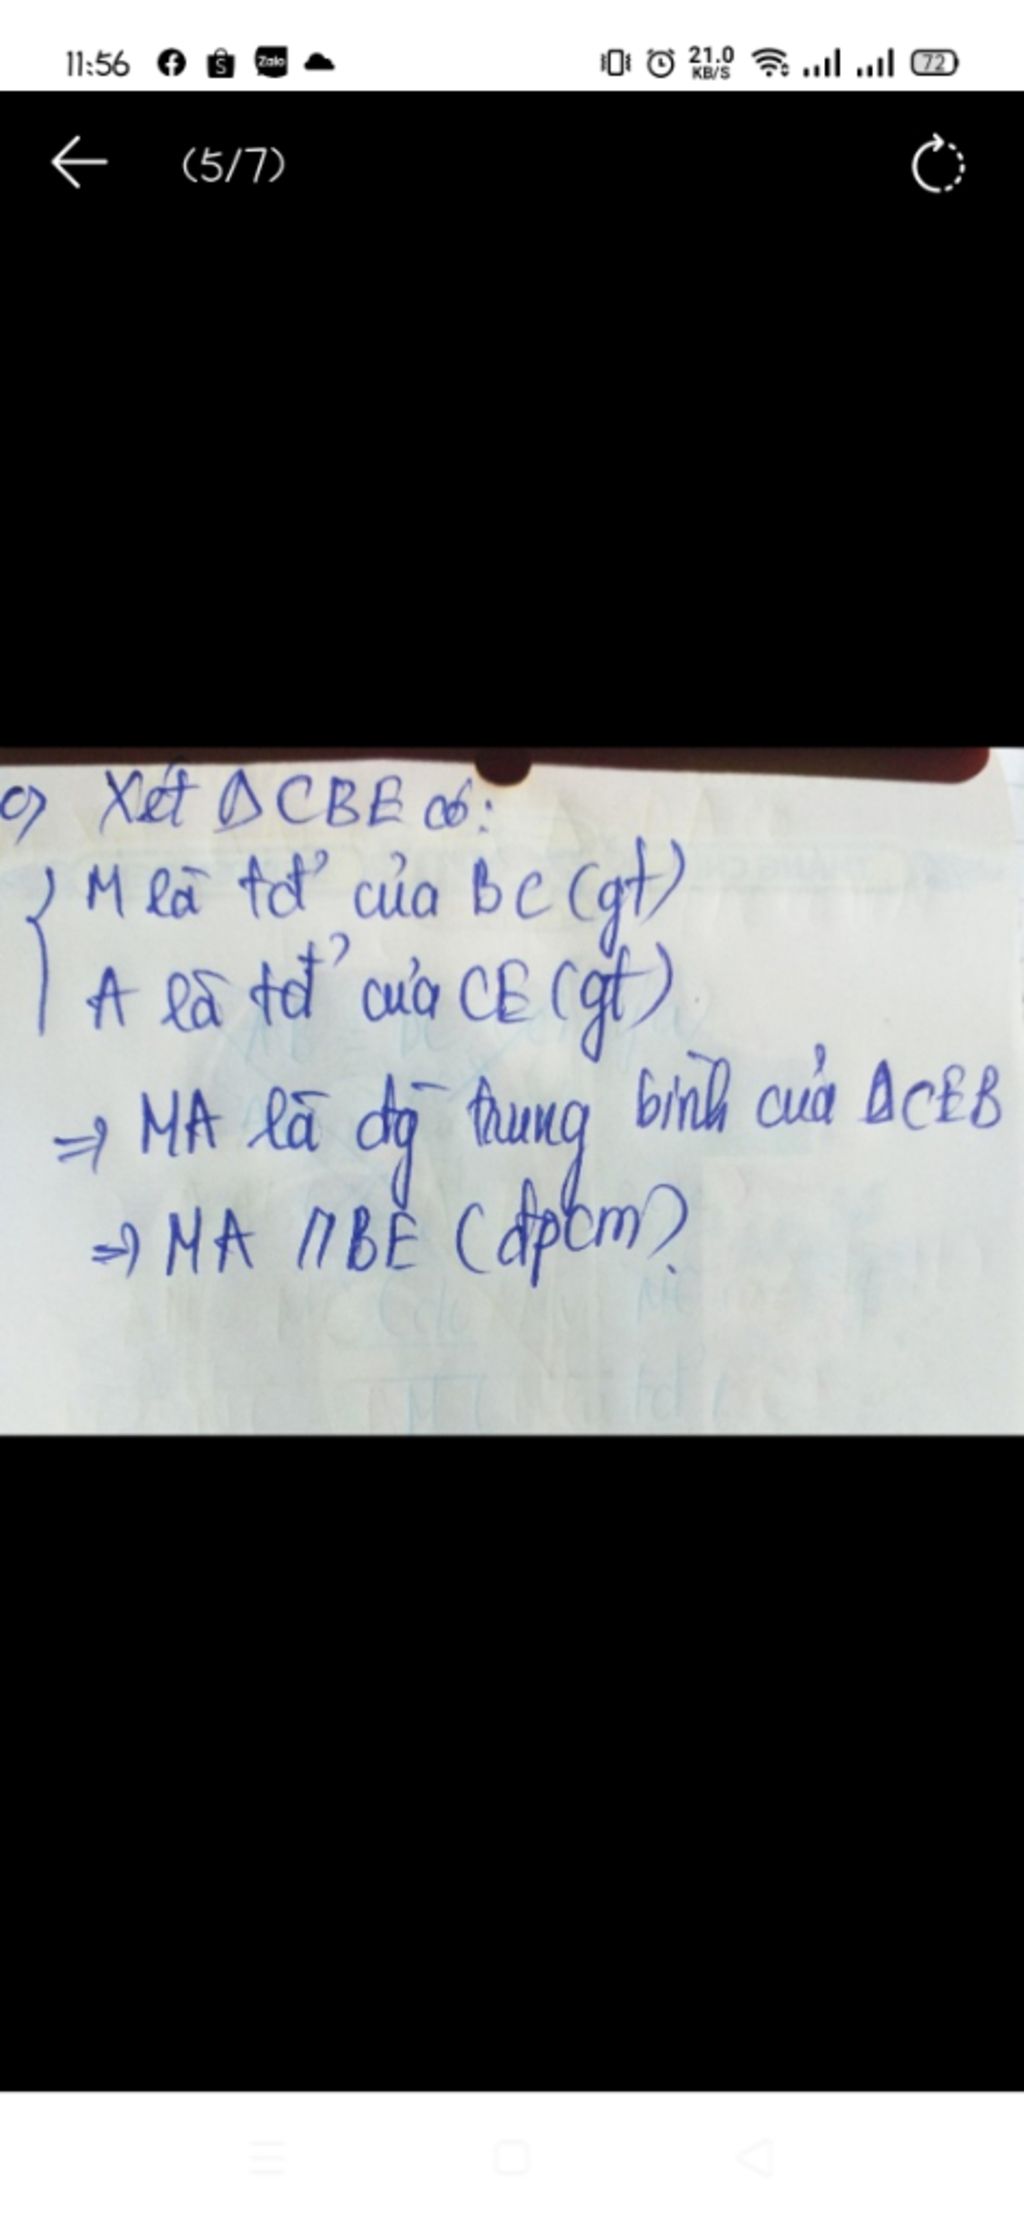 11:56 Zalo 21.0 KB/S 72
(5/7)
c) Xét ΔCBE có:
{ M là tđ' của BC (gt)
A là tđ' của CE (gt)
=> MA là đg trung bình của ΔCEB
=> MA // BE (đpcm)